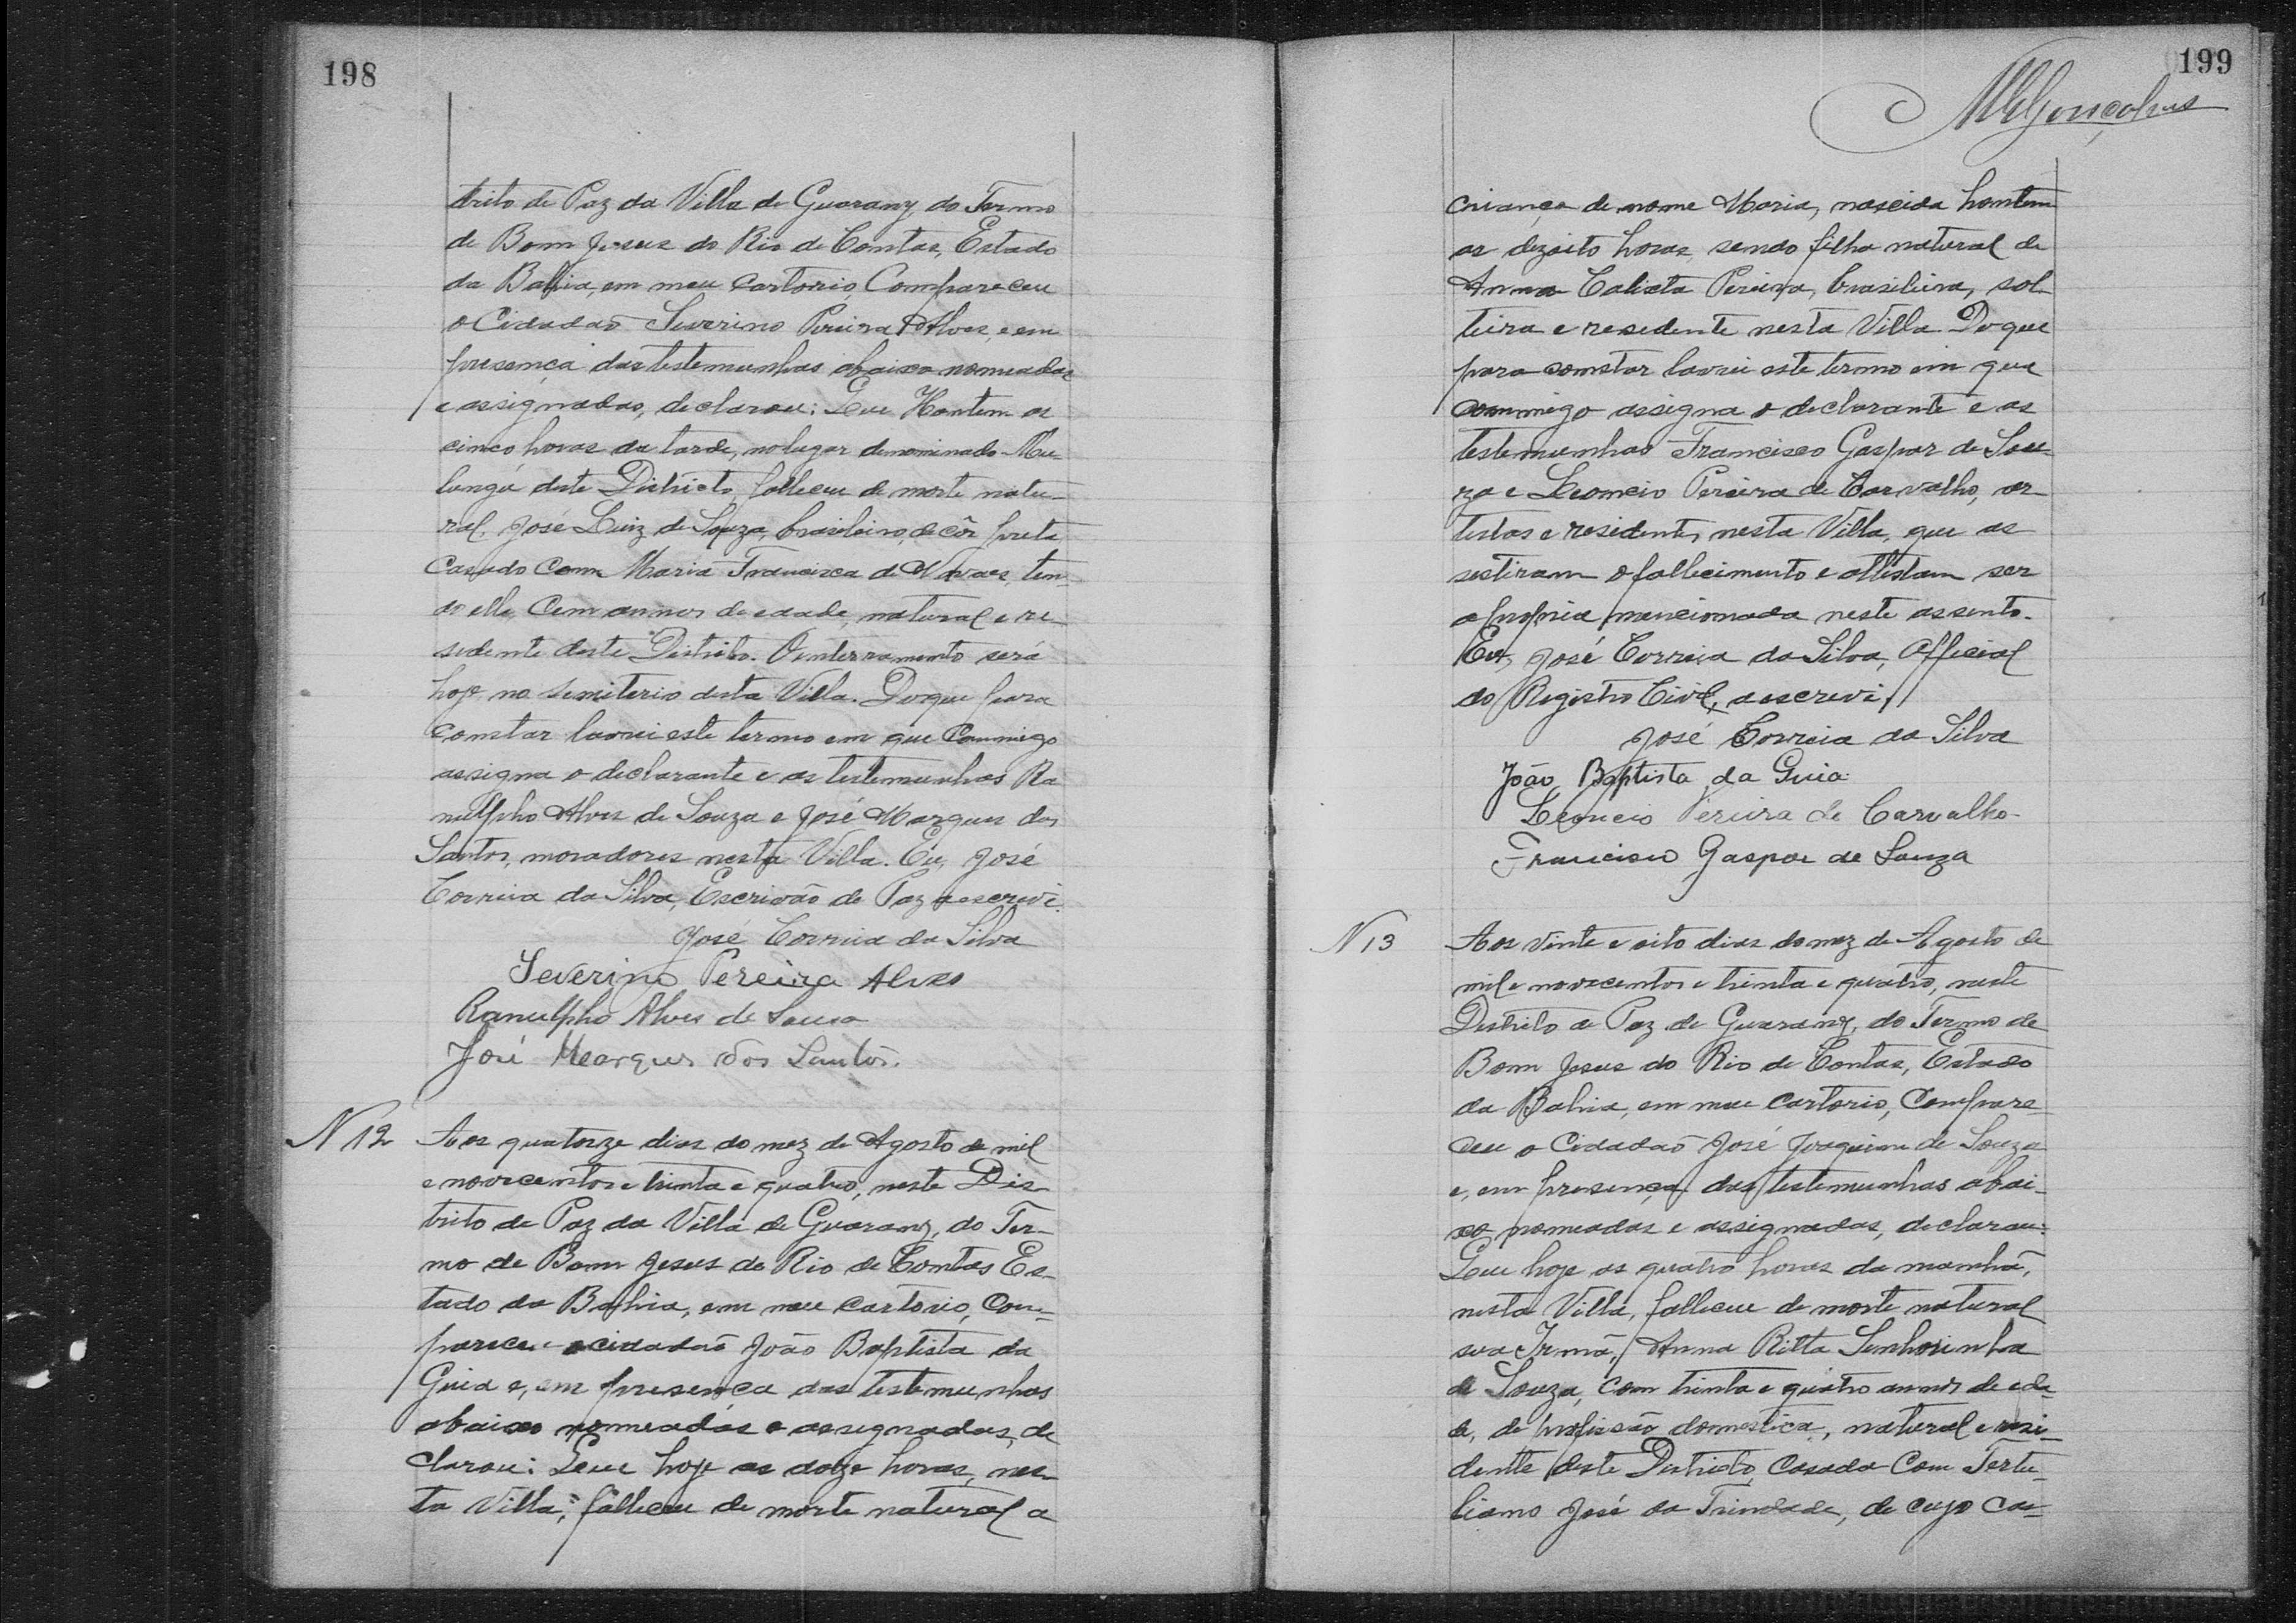 198
trito de Paz da Villa de Guarany, do Termo
de Bom Jesus do Rio de Contas, Estado
da Bahia, em meu cartorio, Compareceu
o Cidadão Severino Pereira Alves, e em
presença das testemunhas abaixo nomeadas
e assignadas, declarou: Que Hontem as
cinco horas da tarde, no lugar denominado Mu-
lungú deste Districto, falleceu de morte natu-
ral, José Luiz de Souza, brasileiro, de côr preta
Casado Com Maria Francisca de Novaes, ten-
do elle, Cem annos de edade, natural e re-
sedente deste Distrito. O enterramento será
hoje no Semiterio desta Villa. Do que para
constar lavrei este termo em que Commigo
assigna o declarante e as testemunhas Ra
nulpho Alves de Souza e José Marques dos
Santos, moradores nesta Villa. Eu, José
Correia da Silva, Escrivão de Paz o escrevi.
José Correia da Silva
Severino Pereira Alves
Ranulpho Alves de Sousa
José Marques dos Santos.
N 12 Aos quatorze dias do mez de Agosto de mil
e novecentos e trinta e quatro, neste Dis
trito de Paz da Villa de Guarany, do Ter-
mo de Bom Jesus do Rio de Contas Es-
tado da Bahia, em meu cartorio, Com-
pareceu o cidadão João Baptista da
Guia e, em presença das testemunhas
abaixo nomeadas e assignadas, de
clarou: Que hoje as doze horas, nes-
ta Villa, falleceu de morte natural a
199
MGonçalves
criança de nome Maria, nascida hontem
as dezoito horas, sendo filha natural de
Anna Calixta Pereira, brasileira, sol-
teira e resedente nesta Villa. Do que
para constar lavrei este termo em que
commigo assigna o declarante e as
testemunhas Francisco Gaspar de Sou-
za e Leoncio Pereira de Carvalho, ar-
tistas e residentes nesta Villa, que as
sestiram o fallecimento e attestam ser
a propria mencionada neste assento.
Eu, José Correia da Silva, Official
do Registro Civil, o escrevi.
José Correia da Silva
João Baptista da Guia
Leoncio Pereira de Carvalho
Francisco Gaspar de Souza
N 13 Aos vinte e oito dias do mez de Agosto de
mil e novecentos e trinta e quatro, neste
Destrito de Paz de Guarany, do Termo de
Bom Jesus do Rio de Contas, Estado
da Bahia, em meu cartorio, Compare
ceu o Cidadão José Joaquim de Souza
e, em presença das testemunhas abai-
xo nomeadas e assignadas, declarou:
Que hoje as quatro horas da manhã,
nesta Villa, falleceu de morte natural
sua Irmã, Anna Ritta Senhorinha
de Souza, com trinta e quatro annos de eda-
de, de profissão domestica, natural e resi-
dente deste Districto, Casada Com Tertu-
liano José da Trindade, de cujo ca-